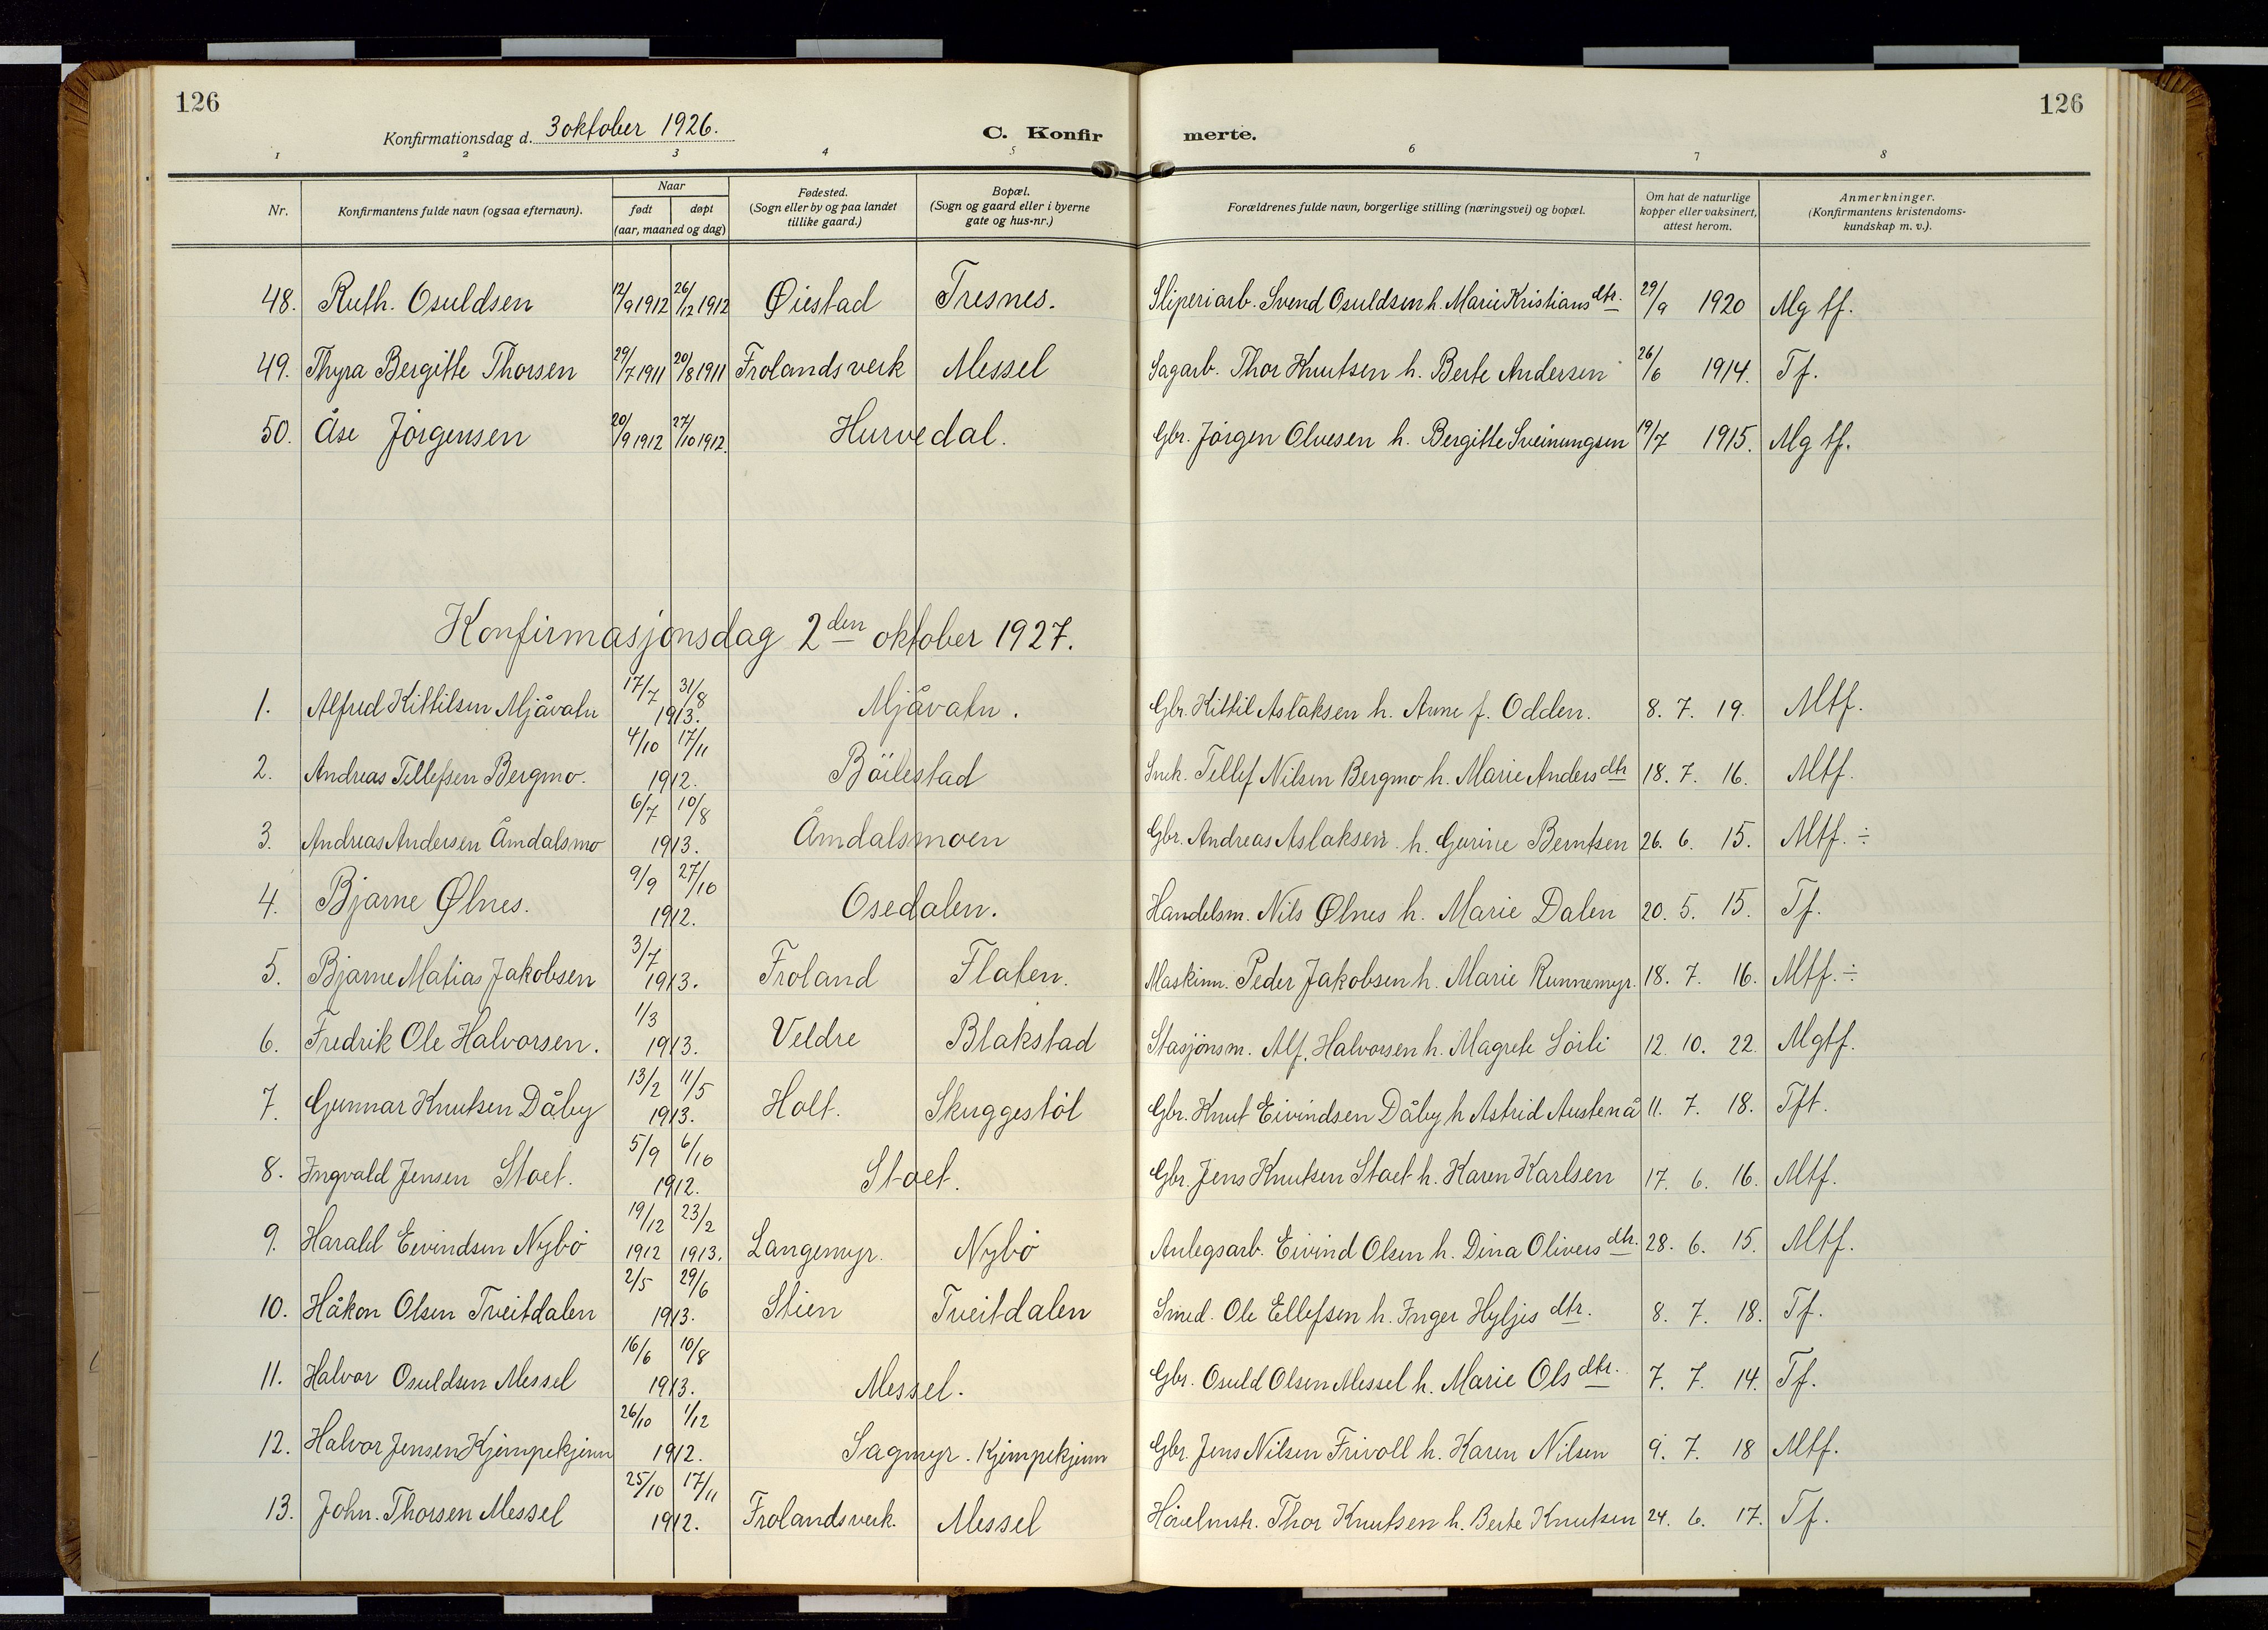 126
126
Konfirmationsdag d. 3 oktober 1926.
C. Konfir merte.
1 2 3 4 5 6 7 8
Nr.
Konfirmantens fulde navn (ogsaa efternavn).
Naar
født døpt
(aar, maaned og dag)
Fødested.
(Sogn eller by og paa landet
tillike gaard.)
Bopæl.
(Sogn og gaard eller i byerne
gate og hus-nr.)
Forældrenes fulde navn, borgerlige stilling (næringsvei) og bopæl.
Om hat de naturlige
kopper eller vaksinert,
attest herom.
Anmerkninger.
(Konfirmantens kristendoms-
kundskap m. v.).
48. Ruth. Osuldsen 12/9 1912 26/12 1912 Øiestad Tresnes. Sliperiarb. Svend Osuldsen h. Marie Kristiansdtr. 29/9 1920 Mg tf.
49. Thyra Bergitte Thorsen 29/7 1911 20/8 1911 Frolands verk Messel Sagarb. Thor Knutsen h. Berte Andersen 26/6 1914. Tf.
50. Åse Jörgensen 20/9 1912 27/10 1912. Hurvedal. Gbr. Jörgen Olvesen h. Bergitte Sveinungsen 19/7 1915. Mg tf.
Konfirmasjonsdag 2den oktober 1927.
1. Alfred Kittilsen Mjåvatn 17/7 31/8 1913. Mjåvatn. Gbr. Kittil Aslaksen h. Anne f. Odden. 8. 7. 19. Mtf.
2. Andreas Tellefsen Bergmo. 4/10 17/11 1912. Böilestad Snek. Tellef Nilsen Bergmo h. Marie Andersdtr 18. 7. 16. Mtf.
3. Andreas Andersen Åmdalsmo 6/7 10/8 1913. Åmdalsmoen Gbr. Andreas Aslaksen h. Gurine Berntsen 26. 6. 15. Mtf. ÷
4. Bjarne Ølnes. 9/9 27/10 1912. Osedalen. Handelsm. Nils Ølnes h. Marie Dalen 20. 5. 15. Tf.
5. Bjarne Matias Jakobsen 3/7 1913. Froland Flaten. Maskinn. Peder Jakobsen h. Marie Runnemyr. 18. 7. 16. Mtf. ÷
6. Fredrik Ole Halvorsen. 1/3 1913. Veldre Blakstad Stasjonsm. Alf. Halvorsen h. Magrete Loili 12. 10. 22. Mgtf.
7. Gunnar Knutsen Dåby 13/2 11/5 1913. Holt. Skuggestöl Gbr. Knut Eivindsen Dåby h Astrid Austenå 11. 7. 18. Tft.
8. Ingvald Jensen Stoet. 5/9 6/10 1912. Stoet. Gbr. Jens Knutsen Stoet h. Karen Karlsen 17. 6. 16. Mtf.
9. Harald Eivindsen Nybö 19/12 1912 23/2 1913. Langemyr. Nybö Anlegsarb. Eivind Olsen h. Dina Oliversdtr. 28. 6. 15. Mtf.
10. Håkon Olsen Tveitdalen 2/5 29/6 1913. Stien Tveitdalen Smed. Ole Ellefsen h. Inger Hyljes dtr. 8. 7. 18. Tf.
11. Halvor Osuldsen Messel 16/6 10/8 1913. Messel. Gbr. Osuld Olsen Messel h. Marie Olsdtr. 7. 7. 14. Tf.
12. Halvor Jensen Kjempekjenn 26/10 1/12 1912. Sagmyr. Kjempekjenn Gbr. Jens Nilsen Frivoll h. Karen Nilsen 9. 7. 18 Mtf.
13. John. Thorsen Messel 25/10 17/11 1912. Frolandsverk. Messel Hövelmstr. Thor Knutsen h. Berte Knutsen 24. 6. 17. Tf.